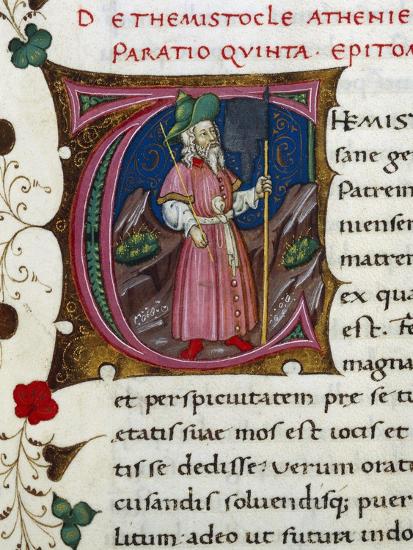 DE THEMISTOCLE ATHENIE
PARATIO QVINTA. EPITO
HEMIS
sane ge
Patrem
nienser
matrem
ex qua
est.
magna
et perspicuitatem pre se tu
etatis suae mos est iocis et
tis se dedisse: verum orat
cusandis soluendisq; puer
litum: adeo ut futura indo